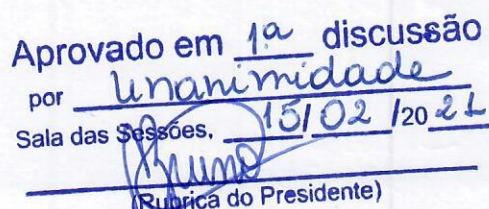 Aprovado em 1ª discussão
por unanimidade
Sala das Sessões, 15/02/2021
Bruno
(Rubrica do Presidente)